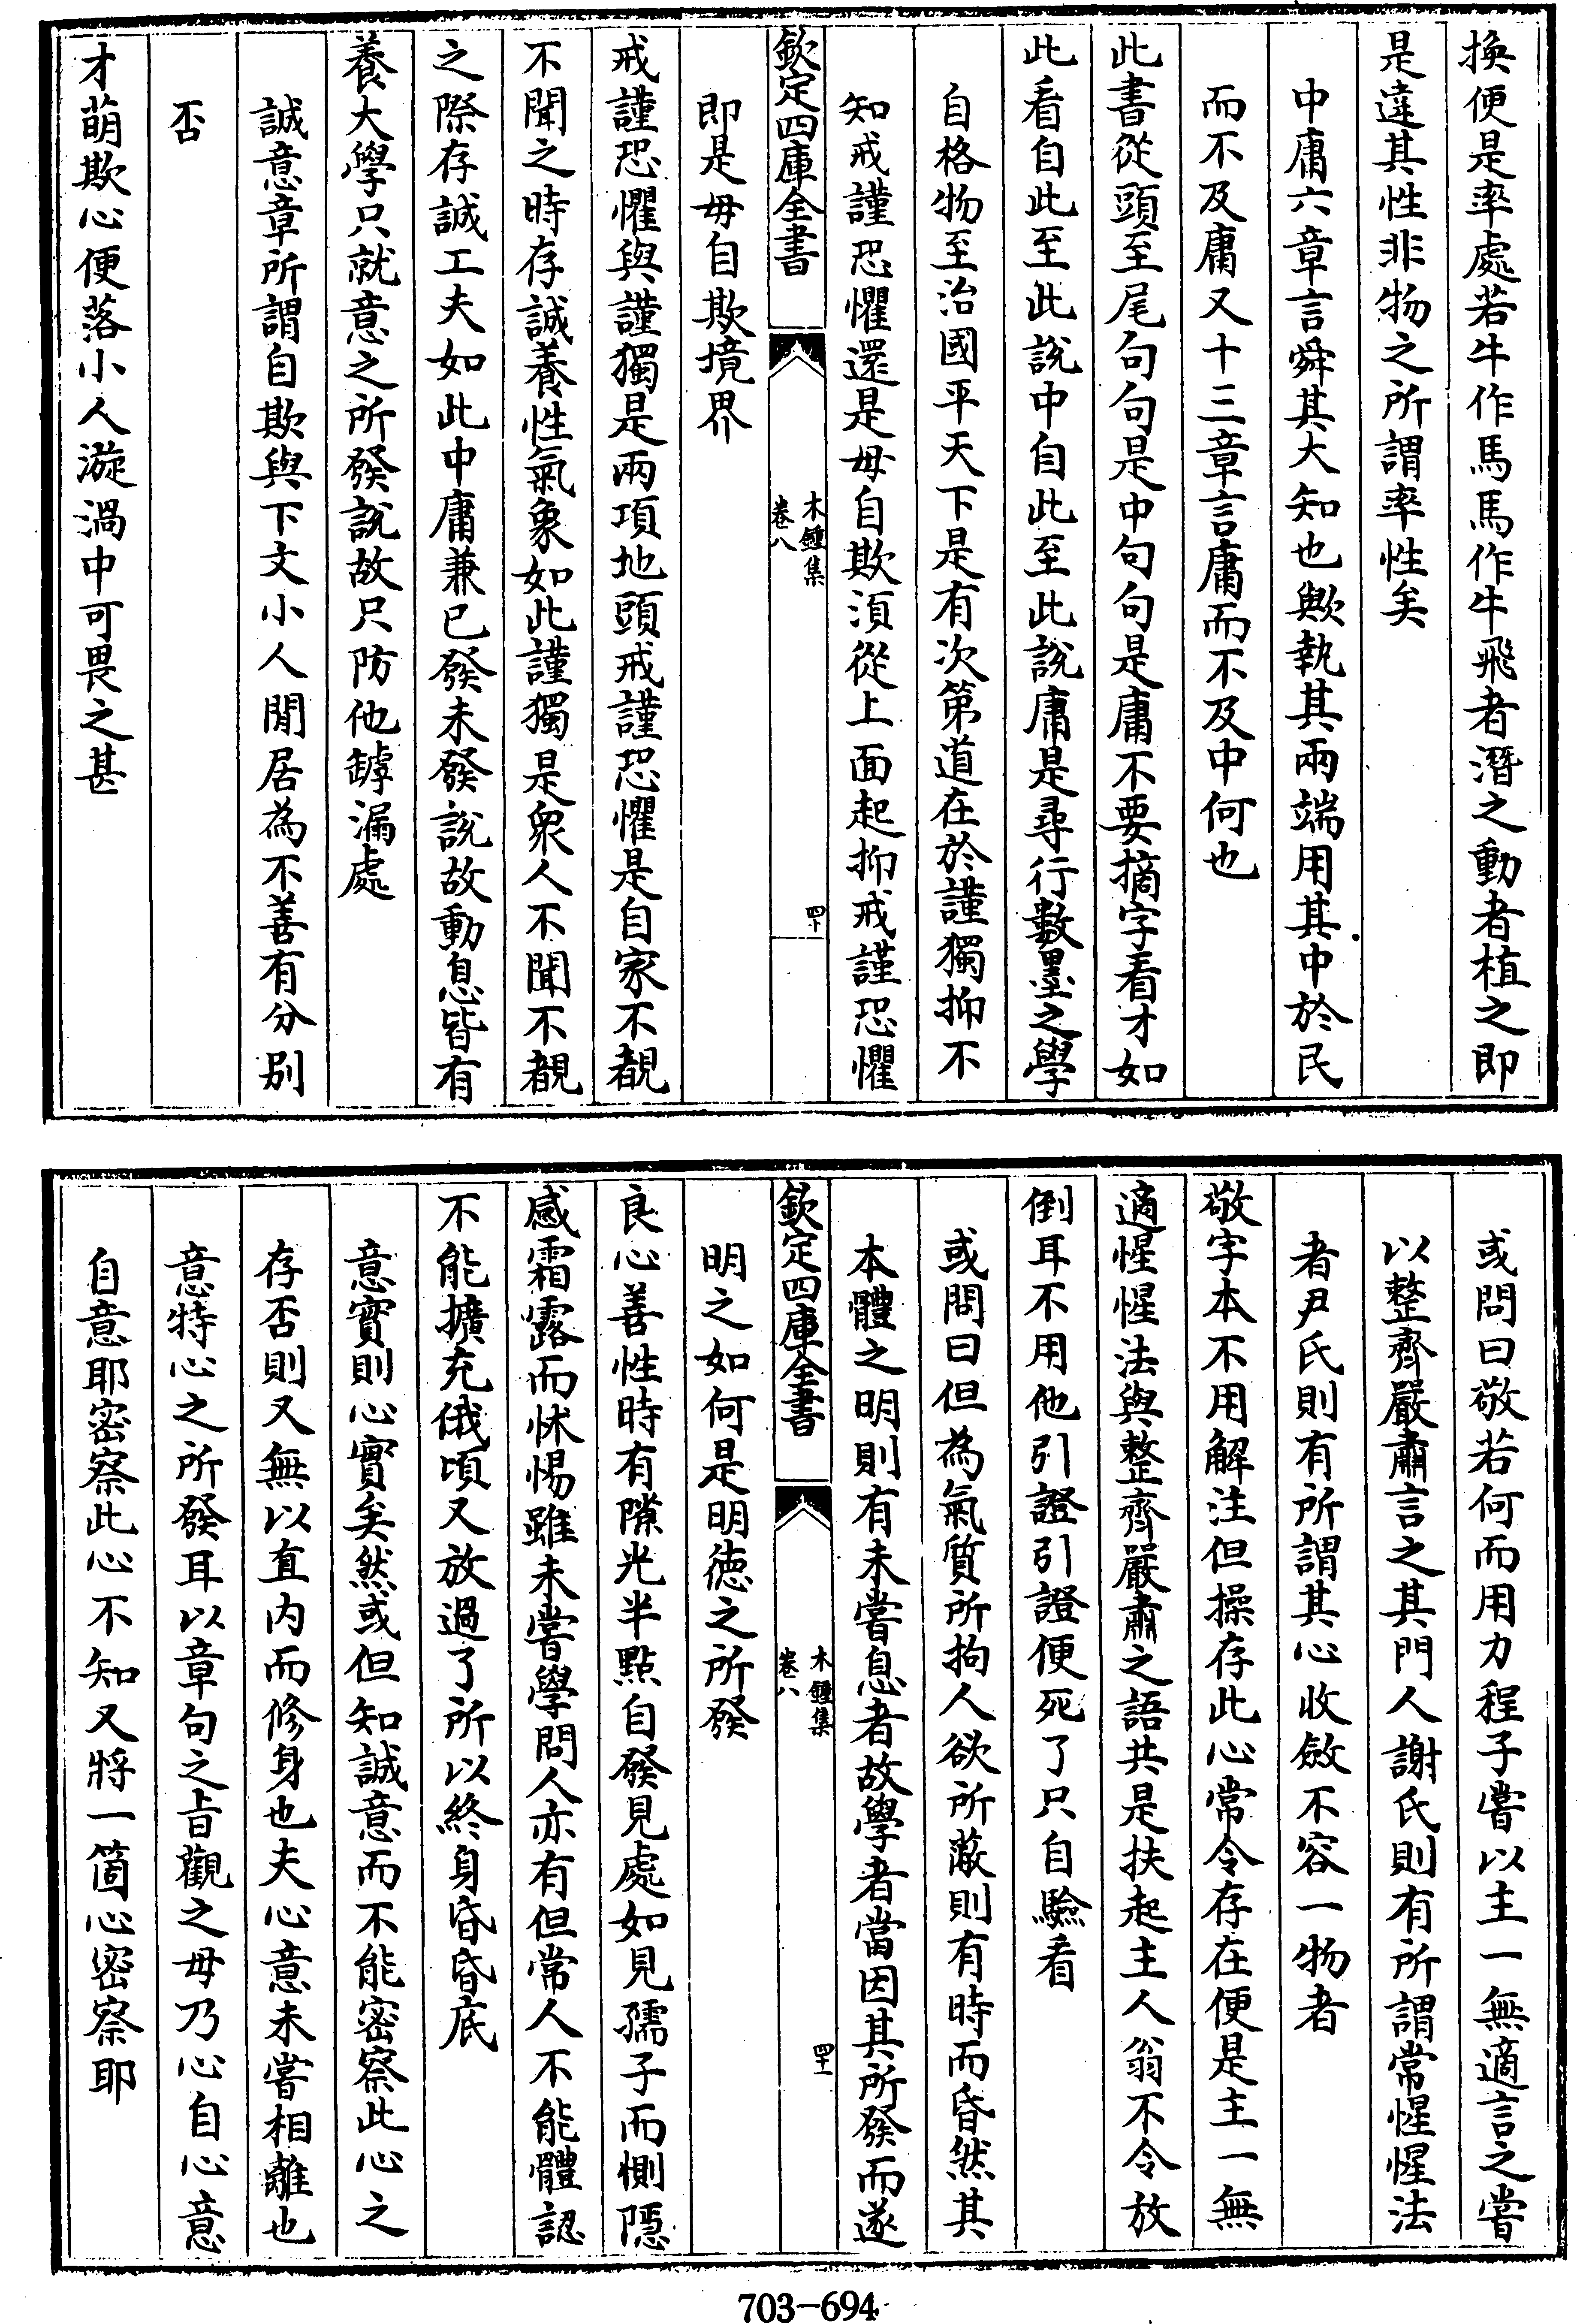 換便是率處若牛作馬馬作牛飛者潛之動者植之即
是違其性非物之所謂率性矣
中庸六章言舜其大知也歟執其兩端用其中於民
而不及庸又十三章言庸而不及中何也
此書從頭至尾句句是中句句是庸不要摘字看才如
此看自此至此說中自此至此說庸是尋行數墨之學
自格物至治國平天下是有次第道在於謹獨抑不
知戒謹恐懼還是毋自欺湏從上面起抑戒謹恐懼
欽定四庫全書
木鍾集
卷八
四十
即是毋自欺境界
戒謹恐懼與謹獨是兩項地頭戒謹恐懼是自家不覩
不聞之時存誠養性氣象如此謹獨是衆人不聞不覩
之際存誠工夫如此中庸兼已發未發說故動息皆有
養大學只就意之所發說故只防他罅漏處
誠意章所謂自欺與下文小人閒居為不善有分别
否
才萌欺心便落小人漩渦中可畏之甚
或問曰敬若何而用力程子嘗以主一無適言之嘗
以整齊嚴肅言之其門人謝氏則有所謂常惺惺法
者尹氏則有所謂其心收斂不容一物者
敬字本不用解注但操存此心常令存在便是主一無
適惺惺法與整齊嚴肅之語共是扶起主人翁不令放
倒耳不用他引證引證便死了只自驗看
或問曰但為氣質所拘人欲所蔽則有時而昏然其
本體之明則有未嘗息者故學者當因其所發而遂
欽定四庫全書
木鍾集
卷八
四十一
明之如何是明德之所發
良心善性時有隙光半點自發見處如見孺子而惻隱
感霜露而怵惕雖未嘗學問人亦有但常人不能體認
不能擴充俄頃又放過了所以終身昏昏底
意實則心實矣然或但知誠意而不能密察此心之
存否則又無以直内而修身也夫心意未嘗相離也
意特心之所發耳以章句之旨觀之毋乃心自心意
自意耶密察此心不知又將一箇心密察耶
703-694